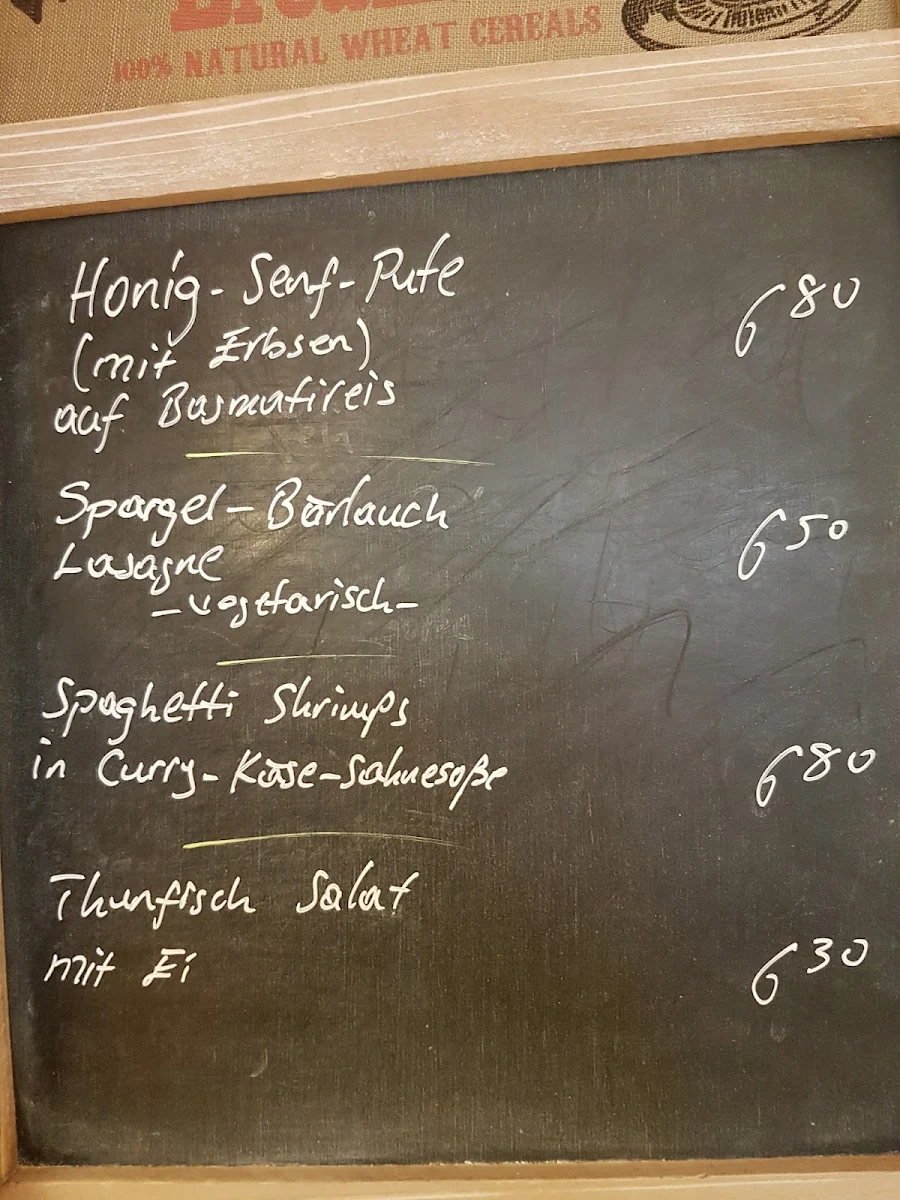 100% NATURAL WHEAT CEREALS
Honig-Senf-Pute
(mit Erbsen) 6 80
auf Basmatireis
Spargel-Bärlauch
Lasagne 6 50
-vegetarisch-
Spaghetti Shrimps
in Curry-Käse-Sahnesoße 6 80
Thunfisch Salat
mit Ei 6 30